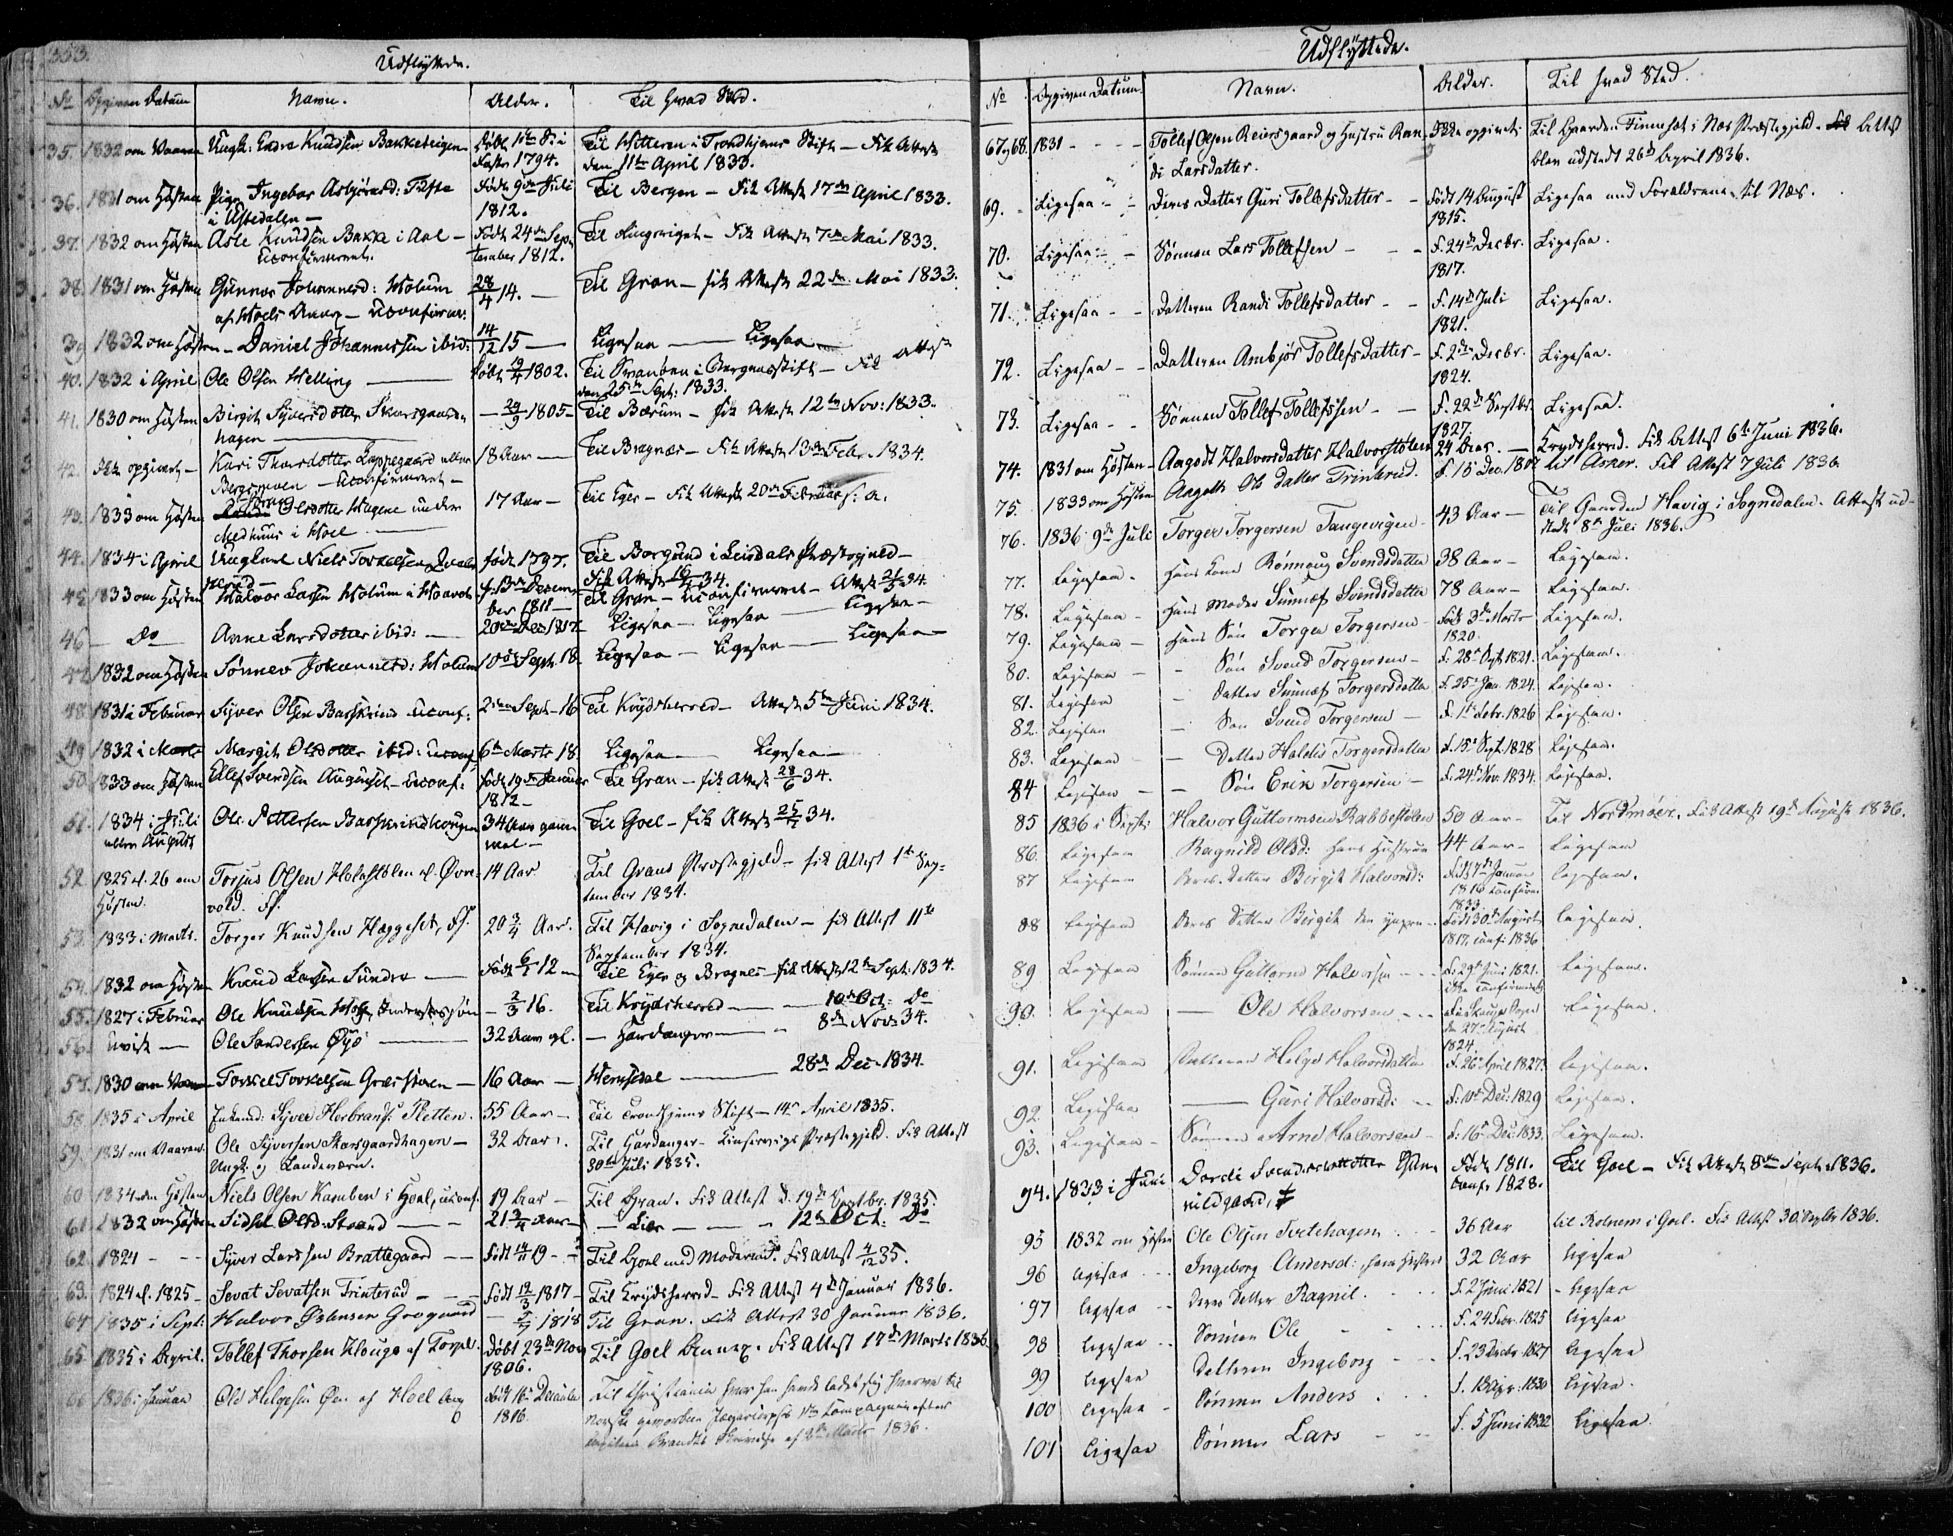 353.
Udflyttede.
No Opgiven Datum Navn. Alder. Til hvad Sted.
35. 1832 om Vaaren Ungk: Endre Knudsen Bakketeigen født 11te Di i
Faster 1794. Til Hitteren i Trondhjems Stift – Fik Attest
den 11te April 1833.
36. 1831 om Høsten Pige Ingebor Asbjørnsd: Tufte født 9de Juli Til Bergen – Fik Attest 17de April 1833.
i Ustedalen – 1812.
37. 1832 om Høsten Asle Knudsen Bakke i Aal – født 24de Sep- Til Ringeriget – Fik Attest 7de Mai 1833.
uconfirmeret. tember 1812.
38. 1831 om Høsten Gunnar Johannesd: Holum 28/4 14. – Til Gran – fik Attest 22de Mai 1833.
af Hoels Annex – uconfirm:
39 1832 om Høsten – Daniel Johannessen ibid: 14/12 15 – Ligesaa – Ligesaa –
40. 1832 i April Ole Olsen Helling – født 19/4 1802. Til Svanøen i Bergensstift – Fik Attest
den 25de Sept: 1833.
41. 1830 om Høsten Birgit Syversdotter Skarsgaards – 29/9 1805 – Til Bærum – fik Attest 12te Nov: 1833.
hagen –
42. Ikke opgivet – Kari Thorsdotter Lappegaard eller 18 Aar – Til Bragnæs – Fik Attest 13de Febr. 1834.
Bergsmoen – uconfirmeret –
43. 1833 om Høsten Olsdotter Hagene under 17 Aar – Til Eger – Fik Attest 20de Februar s: a.
Medhuus i Hoel –
44. 1834 i April Ungkarl Niels Torkelsen født 1797. Til Borgund i Leirdals Præstegjeld –
Fik Attest 16/4 34.
45. 1833 om Høsten Halvor Larsen Holum i f. 13de Decem- Til Gran – uconfirmeret – Attest 24.
ber 1811 –
46 – Do – Anne Larsdotter ibid: – 20de Dec. 1817 – Ligesaa – Ligesaa – Ligesaa –
47. 1832 om Høsten Sønnev Johannesd: Holum 10de Sept. 18 – Ligesaa – Ligesaa – Ligesaa –
48. 1831 i Februar Syver Olsen Barskrind uconf: 2den Sept. 16 Til Krydsherred – Attest 5te Juni 1834.
49. 1832 i Marts Margit Olsdotter ibid: uconf: 6te Marts 18. Ligesaa – Ligesaa –
50. 1833 om Høsten Ellef Svendsen – uconf: født 19de Januar Til Gran – fik Attest 28/6 34.
1812 –
51. 1834 i Juli Ole Pettersen Barskrindhougen 34 Aar gam- Til Goel – fik Attest 25/7 34.
eller August mel –
52. 1825 el. 26 om Torjus Olsen Holestølen el. Øvre- 14 Aar Til Grans Præstegjeld – fik Attest 1te Sep-
Høsten. vold. tember 1834.
53. 1833 i Marts. Torger Knudsen Hæggeset, 20 3/4 Aar. Til Havig i Sognedalen – fik Attest 11te
September 1834.
54. 1832 om Høsten Knud Larsen Sundre – født 6/1 12 – Til Eger og Bragnes – fik Attest 12te Sept. 1834.
55. 1827 i Februar Ole Knudsen – 2/3 16. Til Krydsherred – 10de Oct: Do
56. uvist – Ole Sandersen Øyo – 32 Aar gl. – Hardanger – 8de Nov: 34.
57. 1830 om Vaaren Torkel Torkelsen – 16 Aar – Hemsedal – 28de Dec. 1834.
58. 1835 i April Enkemd: Syver Herbrands: Sletten. 55 Aar – Til Trondhjems Stift – 14de April 1835.
59. 1831 om Vaaren. Ole Syversen Skarsgaardhagen – 32 Aar. Til Hardanger – Kinservigs Præstegjeld. Fik Attest
Ungk: og Landeværn. 30te Juli 1835.
60 1834 om Høsten Niels Olsen Kamben i Hoel, uconf. 19 Aar – Til Gran. Fik Attest d. 19de Septbr. 1835.
61. 1832 om Høsten Sidsel Olsd: Strand – 21 3/4 Aar – – Lier – 12te Oct. Do
62. 1824 – Syver Larssen Brattegaard – født 19 – Til Goel med Moderen. Fik Attest 4/12 35.
63. 1824 el. 1825 – Sevat Sevatsen Trinterud – født 12/3 1817 – Til Krydsherred – Fik Attest 4de Januar 1836.
64 1835 i Sept: Halvor Østensen Grøgaard – 5/7 1818 Til Gran. Fik Attest 30 Januar 1836.
65. 1835 i April. Tollef Thorsen Houge af Torpe. Født 23de Nov Til Goel Annex. Fik Attest 17de Marts 1836.
1806.
66 1836 i Januar Ole Helgesen Øen af Hoel Anx født 16de December Til Christiania hvor han havde ladet sig hverve til
1816. norske geworbne Jægercorps 1te Compagnie efter
Capitain Brandts Skrivelse af 2den Marts 1836.
Udflyttede.
No Opgiven Datum. Navn. Alder. Til hvad Sted.
67 og 68. 1831 – – – Tollef Olsen Reiersgaard og Hustru Ran- Ikke opgivet: Til Gaarden Finneset i Næs Præstegjeld – Attest
di Larsdatter. blev udstedt 26de April 1836.
69. – Ligesaa – – Deres Datter Guri Tollefsdatter – – Født 14 August Ligesaa med Forældrene til Næs.
1815.
70. Ligesaa – – Sønnen Lars Tollefsen – – f. 24de Decbr. Ligesaa.
1817.
71. Ligesaa – – Datteren Randi Tollefsdatter – – f. 14de Juli Ligesaa.
1821.
72. Ligesaa – – Datteren Ambjør Tollefsdatter – f. 2den Decbr. Ligesaa.
1824.
73. Ligesaa – – Sønnen Tollef Tollefssen – – f. 22de Septbr. Ligesaa.
1827.
74. 1831 om Høsten – Aagodt Halvorsdatter Halvorstølen 24 Aar. – Krydsherred. Fik Attest 6te Juni 1836.
75. 1833 om Høsten Aagoth Ols datter Trinterud. f. 15 Dec. 1807 til Asker. Fik Attest 7 Juli 1836
76. 1836 9de Juli Torger Torgersen Tungevigen – 43 Aar – Til Gaarden Havig i Sognedalen. Attest ud-
stedt 8de Juli 1836.
77. Ligesaa – Hans Kone Rønnaug Svendsdatter 38 Aar – Ligesaa.
78. Ligesaa – Hans Moder Sunnøf Svendsdatter 78 Aar – Ligesaa.
79. Ligesaa – Hans Søn Torger Torgersen – Født 3de Marts Ligesaa.
1820.
80. Ligesaa – – Søn Svend Torgersen – f. 28de Sept. 1821. Ligesaa.
81. Ligesaa – Datter Sunnøf Torgersdatter f. 25de Jan. 1824. Ligesaa.
82. Ligesaa – Søn Svend Torgersen – f. 1te Febr. 1826 Ligesaa.
83. Ligesaa – Datter Haldis Torgersdatter f. 15de Sept. 1828 Ligesaa.
84 Ligesaa – – Søn Erik Torgersen – f. 24de Nov. 1834. Ligesaa.
85 1836 i Sept: Halvor Guttormsen Rabbestølen 50 Aar – Til Nordmøer. Fik Attest 19de August 1836.
86. Ligesaa Ragnild Olsd: Hans Hustrue 44 Aar – Ligesaa
87 Ligesaa Deres Datter Birgit Halvorsd: f. 17de Januar Ligesaa.
1816 confirm.
1833.
88 Ligesaa Deres Datter Birgit den yngre – født 30te August Ligesaa.
1817, conf: 1836
89 Ligesaa Sønnen Guttorm Halvorsen – – f. 29de Juni 1821. Ligesaa.
ikke confirmeret
90. Ligesaa – Ole Halvorsen – – Ligesaa.
den 27de August
1824.
91. Ligesaa Datteren Helge Halvorsdatter f. 26de April 1827. Ligesaa.
92. Ligesaa – Guri Halvorsd: – f. 10de Dec: 1829 Ligesaa.
93. Ligesaa – Sønnen Arne Halvorsen – f. 16de Dec. 1833. Ligesaa.
94. 1833 i Juni Dordi Svendsdotter Født 1811. Til Goel – Fik Attest 8de Sept. 1836.
conf. 1828.
95 1832 om Høsten Ole Olsen Tvetehagen – 36 Aar til Rotnem i Goel. Fik Attest 30 Septbr 1836.
96 ligesaa Ingeborg Andersd: hans Hustru 32 Aar ligesaa
97 ligesaa deres Datter Ragnil. f. 2 Juni 1821 – ligesaa
98 ligesaa Sønnen Ole – f. 24 Febr. 1825 ligesaa
99 ligesaa Datteren Ingeborg – f. 23 Decbr. 1827 ligesaa
100 ligesaa – Sønnen Anders f. 18 Apr. 1830 ligesaa.
101 ligesaa Sønnen Lars – f. 5 Juni 1832 ligesaa